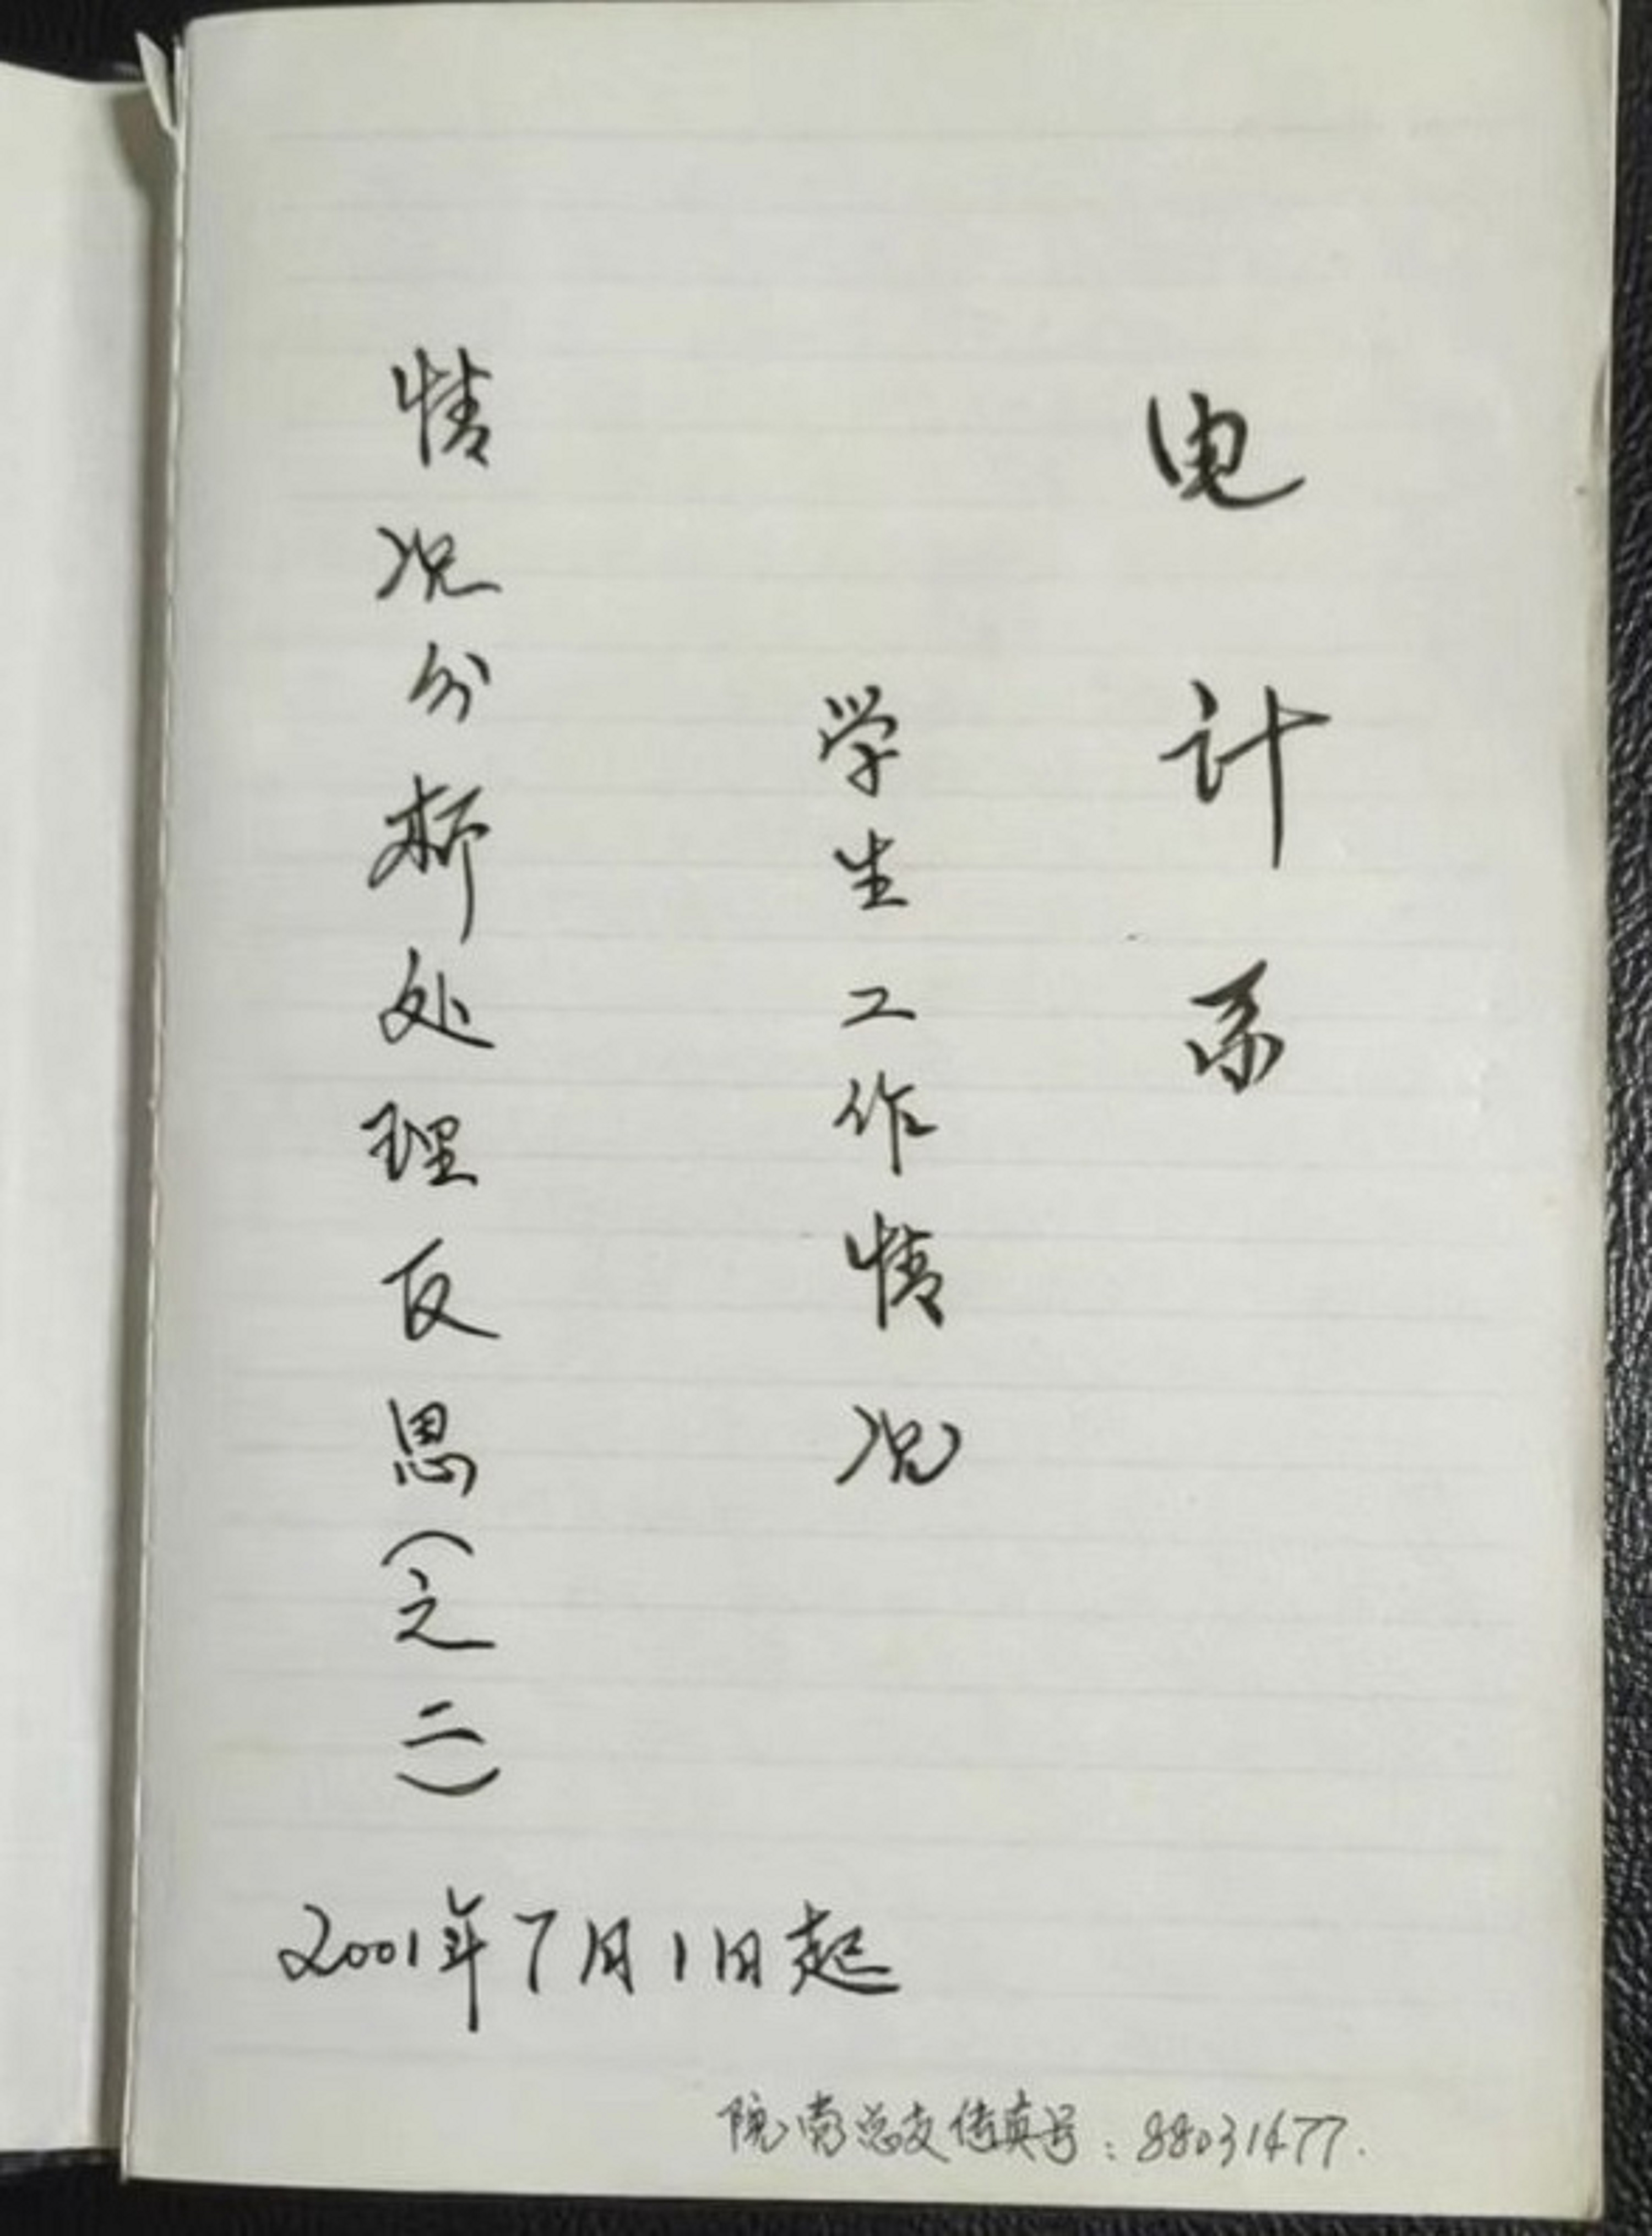 电计系
学生工作情况
情况分析处理反思(之二)
2001年7月1日起
院 总支传真号:88031477.